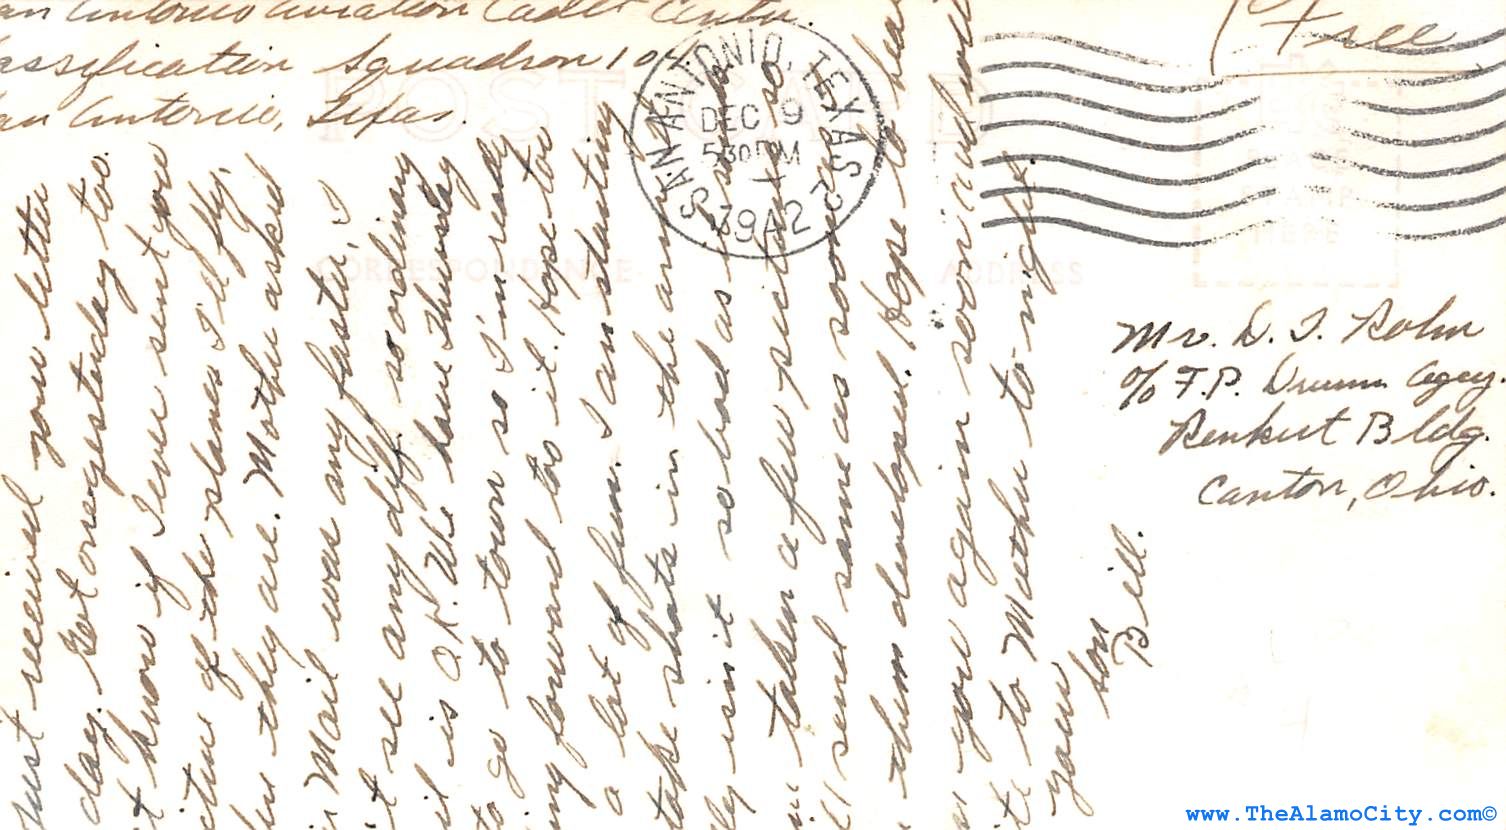 an Antonio Aviation Cadet Center.
assification Squadron 10
an Antonio, Texas.
Free
SAN ANTONIO, TEXAS 2
DEC 9
5 30 PM
1942
POST CARD
CORRESPONDENCE
ADDRESS
PLACE
STAMP
HERE
Mr. D. T. Rohn
c/o F. P. Drumm Agcy.
Renkert Bldg.
Canton, Ohio.
ust received your letter
day. Got one yesterday too.
t know if I ever sent you
cture of the planes I'll fly,
here they are. Mother asked
r Mail was any faster, I
t see any diff. so ordinary
il is O.K. We have Thursday
to go to town so I'm really
ing forward too it. Hope to
a lot of fun. I am starting
take shots in the arm
ly isn't so bad as
taken a few pictures so
'll send same as soon as
them developed. Hope to hear
m you again soon
ite to Mother to-night.
your
son
Bill.
www.TheAlamoCity.com©